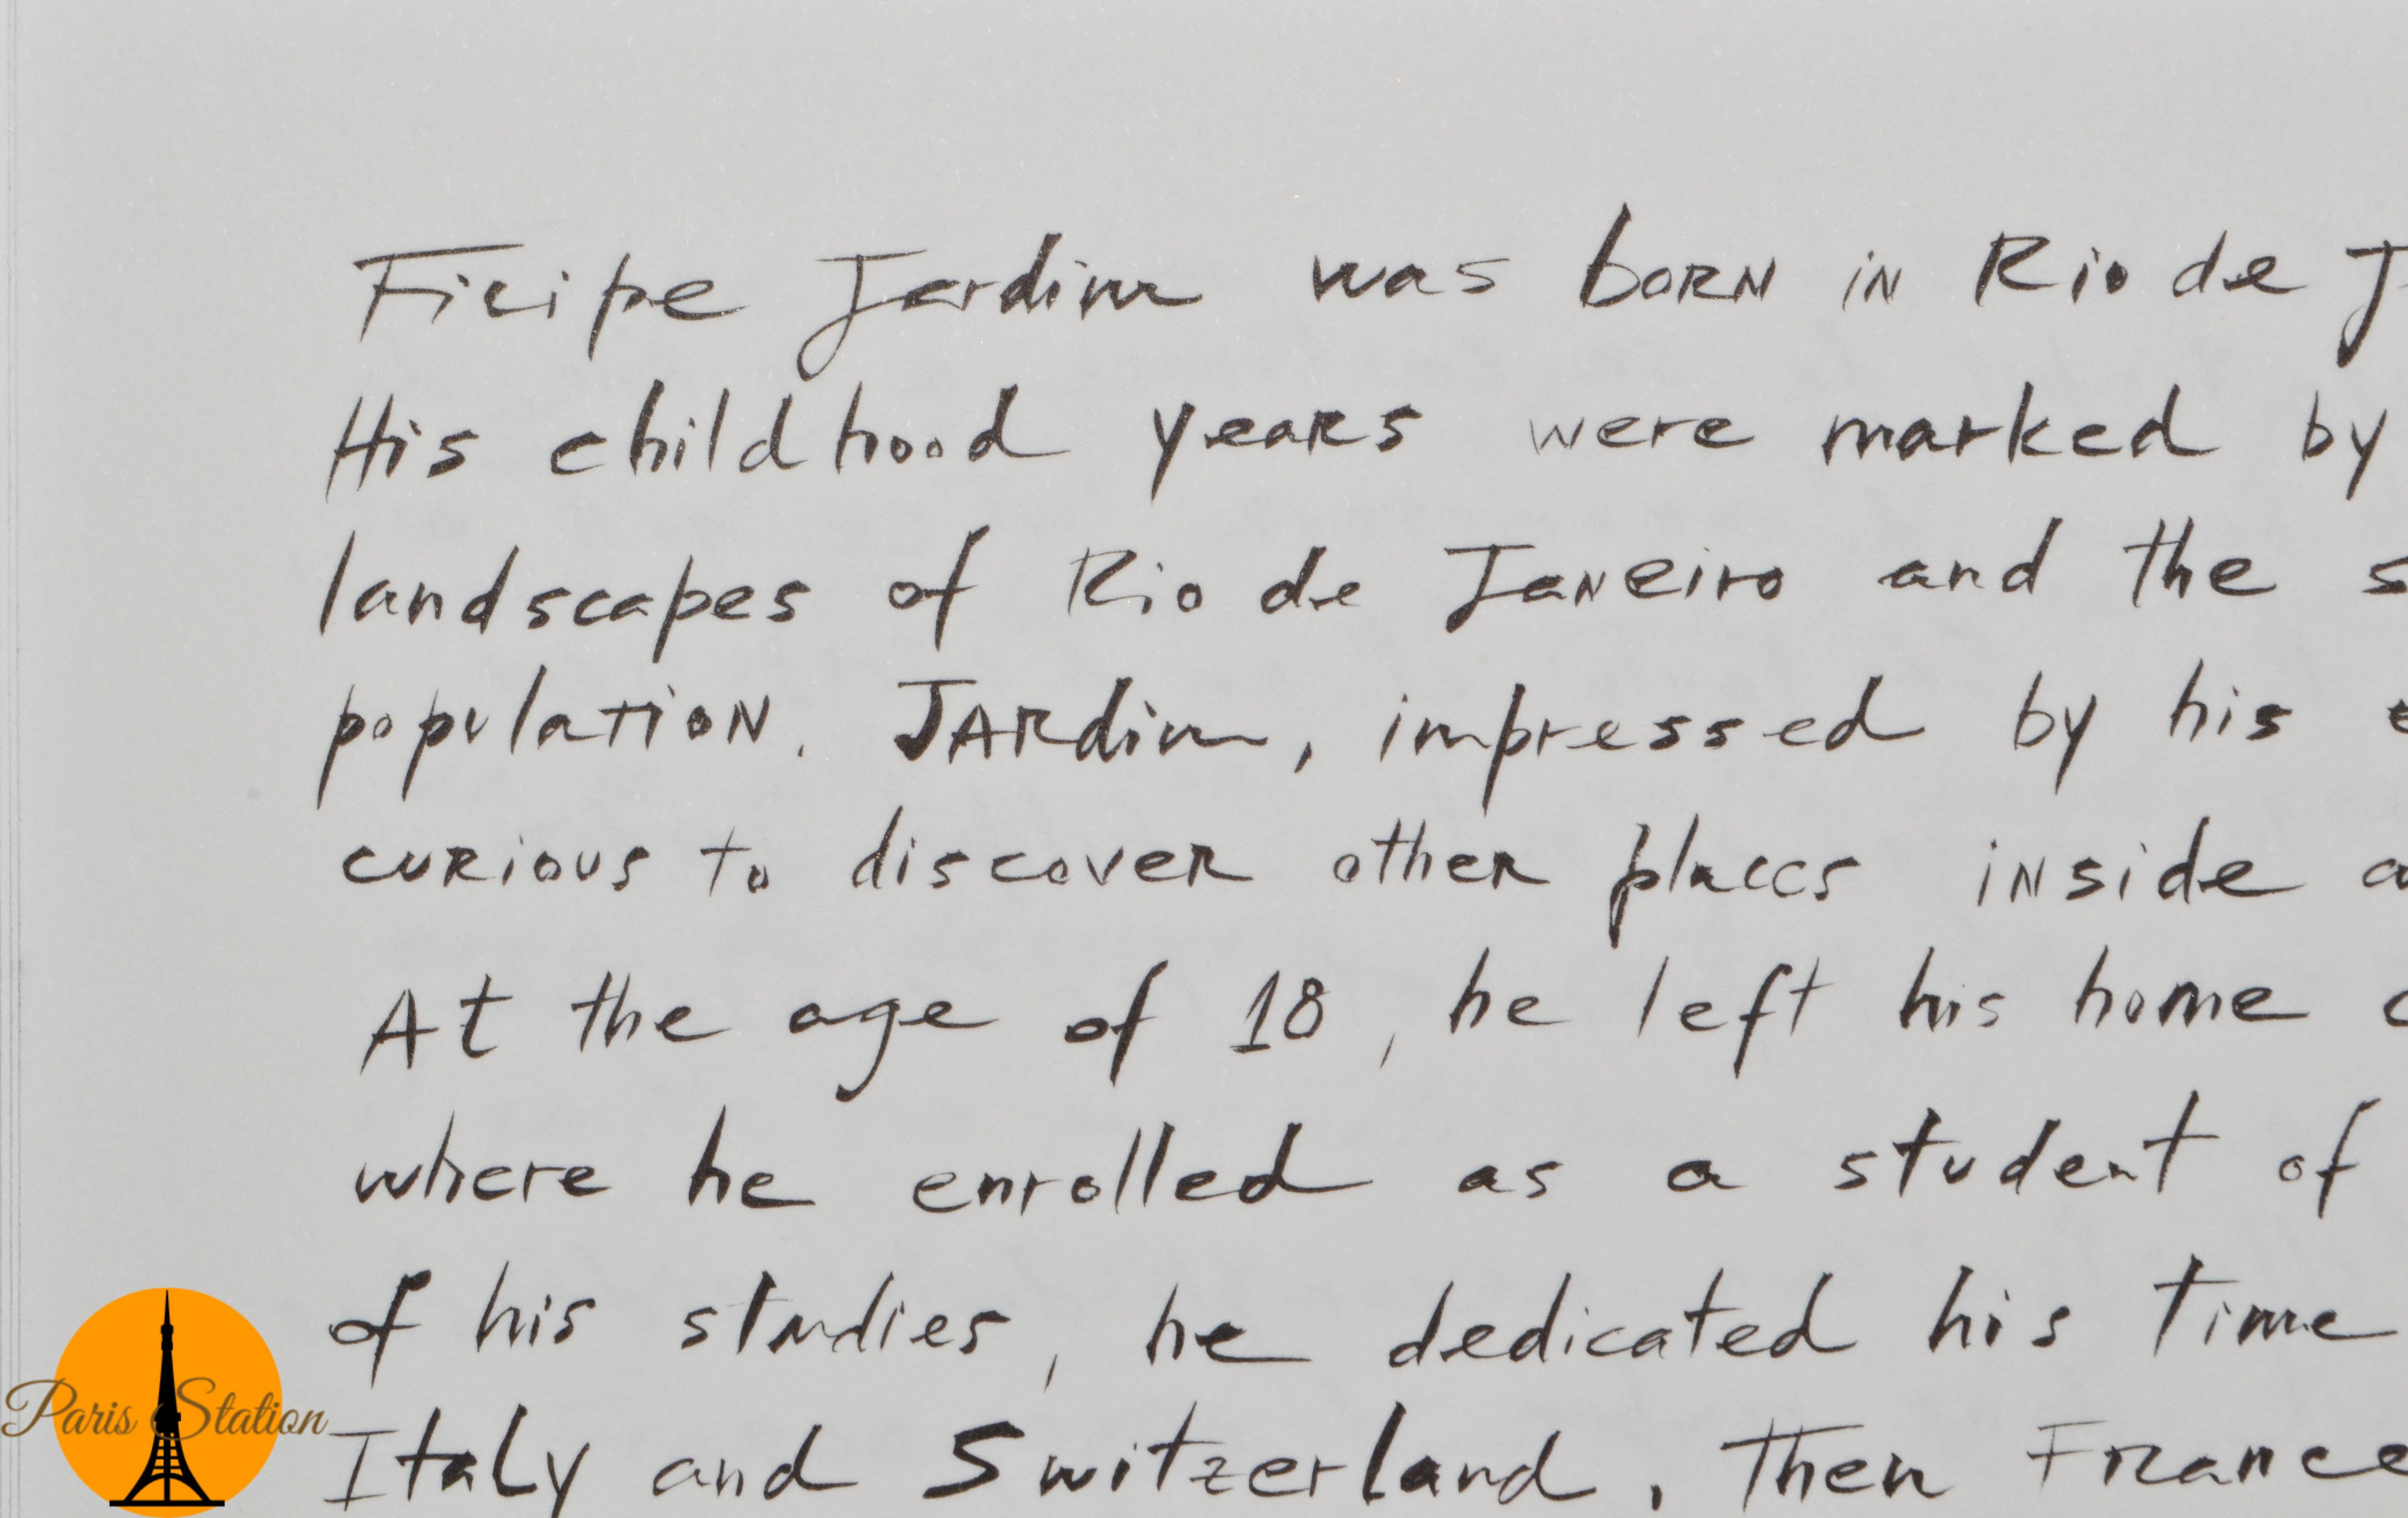 Filipe Jardim was born in Rio de J
His childhood years were marked by
landscapes of Rio de Janeiro and the s
population. Jardim, impressed by his e
curious to discover other places inside a
At the age of 18, he left his home c
where he enrolled as a student of
of his studies, he dedicated his time
Italy and Switzerland, Then France
Paris Station